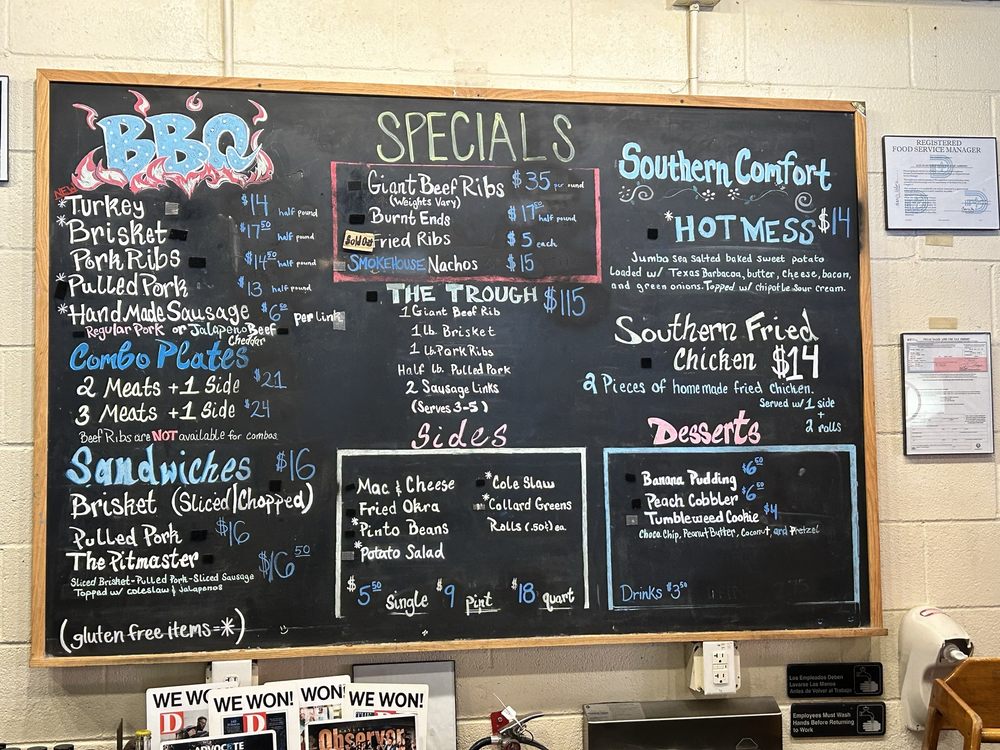 BBQ
NEW
*Turkey $14 half pound
*Brisket $17.50 half pound
Pork Ribs $14.50 half pound
*Pulled Pork $13 half pound
*Hand Made Sausage $6.50 per link
Regular Pork or Jalapeno Beef
Cheddar
Combo Plates
2 Meats + 1 Side $21
3 Meats + 1 Side $24
Beef Ribs are NOT available for combos
Sandwiches $16
Brisket (Sliced/Chopped)
Pulled Pork $16
The Pitmaster $16.50
Sliced Brisket-Pulled Pork-Sliced Sausage
Topped w/ coleslaw & jalapenos
(gluten free items=*)
SPECIALS
Giant Beef Ribs $35 per pound
(Weights Vary)
Burnt Ends $17.50 half pound
Sold Out Fried Ribs $5 each
SMOKEHOUSE Nachos $15
THE TROUGH $115
1 Giant Beef Rib
1 lb. Brisket
1 lb. Pork Ribs
Half lb. Pulled Pork
2 Sausage Links
(Serves 3-5)
Sides
Mac & Cheese
Fried Okra
*Pinto Beans
*Potato Salad
*Cole Slaw
*Collard Greens
Rolls (.50¢) ea.
$5.50 Single $9 Pint $18 quart
Southern Comfort
*HOT MESS $14
Jumbo sea salted baked sweet potato
Loaded w/ Texas Barbacoa, butter, cheese, bacon,
and green onions. Topped w/ chipotle sour cream.
Southern Fried
Chicken $14
2 Pieces of homemade fried chicken.
Served w/ 1 side
+
2 rolls
Desserts
Banana Pudding $6.50
Peach Cobbler $6.50
Tumbleweed Cookie $4
Choco Chip, Peanut Butter, Coconut, and Pretzel
Drinks $3.50
REGISTERED
FOOD SERVICE MANAGER
WE WON!
WE WON!
WE WON!
D
D
ADVOCATE
Observer
Los Empleados Deben
Lavarse Las Manos
Antes de Volver al Trabajo
Employees Must Wash
Hands Before Returning
to Work